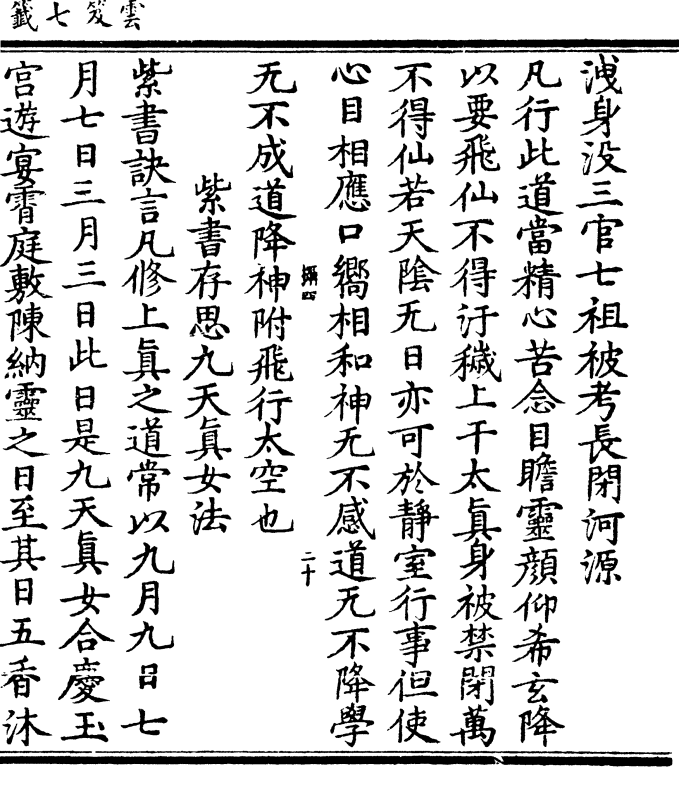 雲笈七籤
洩身没三官七祖被考長閉河源
凡行此道當精心苦念目瞻靈顔仰希玄降
以要飛仙不得汙穢上干太眞身被禁閉萬
不得仙若天陰无日亦可於靜室行事但使
心目相應口嚮相和神无不感道无不降學
二十
无不成道降神附飛行太空也
紫書存思九天眞女法
紫書訣言凡修上眞之道常以九月九日七
月七日三月三日此日是九天眞女合慶玉
宫遊宴霄庭敷陳納靈之日至其日五香沐